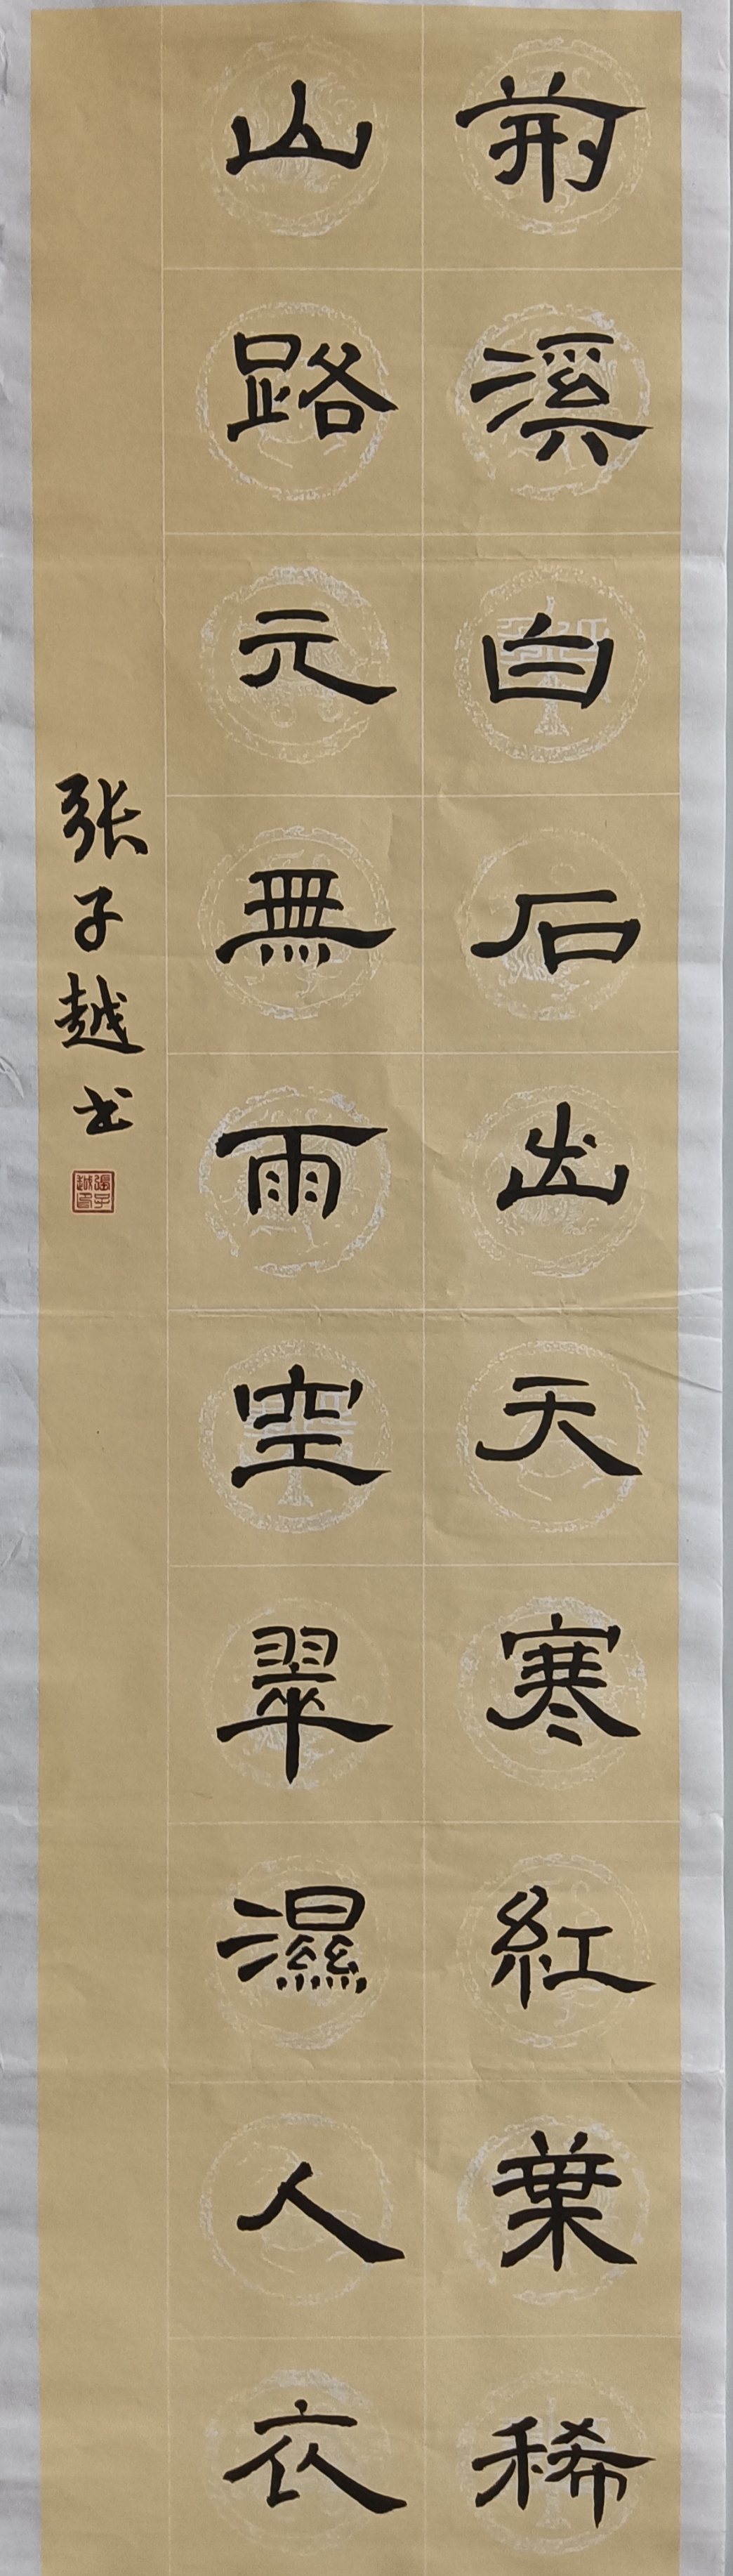 荆溪白石出天寒紅葉稀
山路元無雨空翠濕人衣
张子越书
張子越印